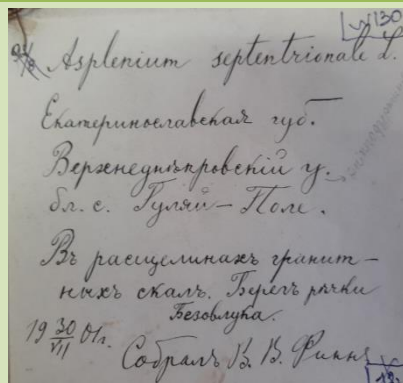 N130
Asplenium septentrionale L.
Екатеринославская губ.
Верхнеднѣпровскій у.
бл. с. Гуляй-Поле.
Въ расщелинахъ гранит-
ныхъ скалъ. Берегъ рѣчки
Безовлука.
19 30/VII 01г.
Собралъ В. В. Финнъ